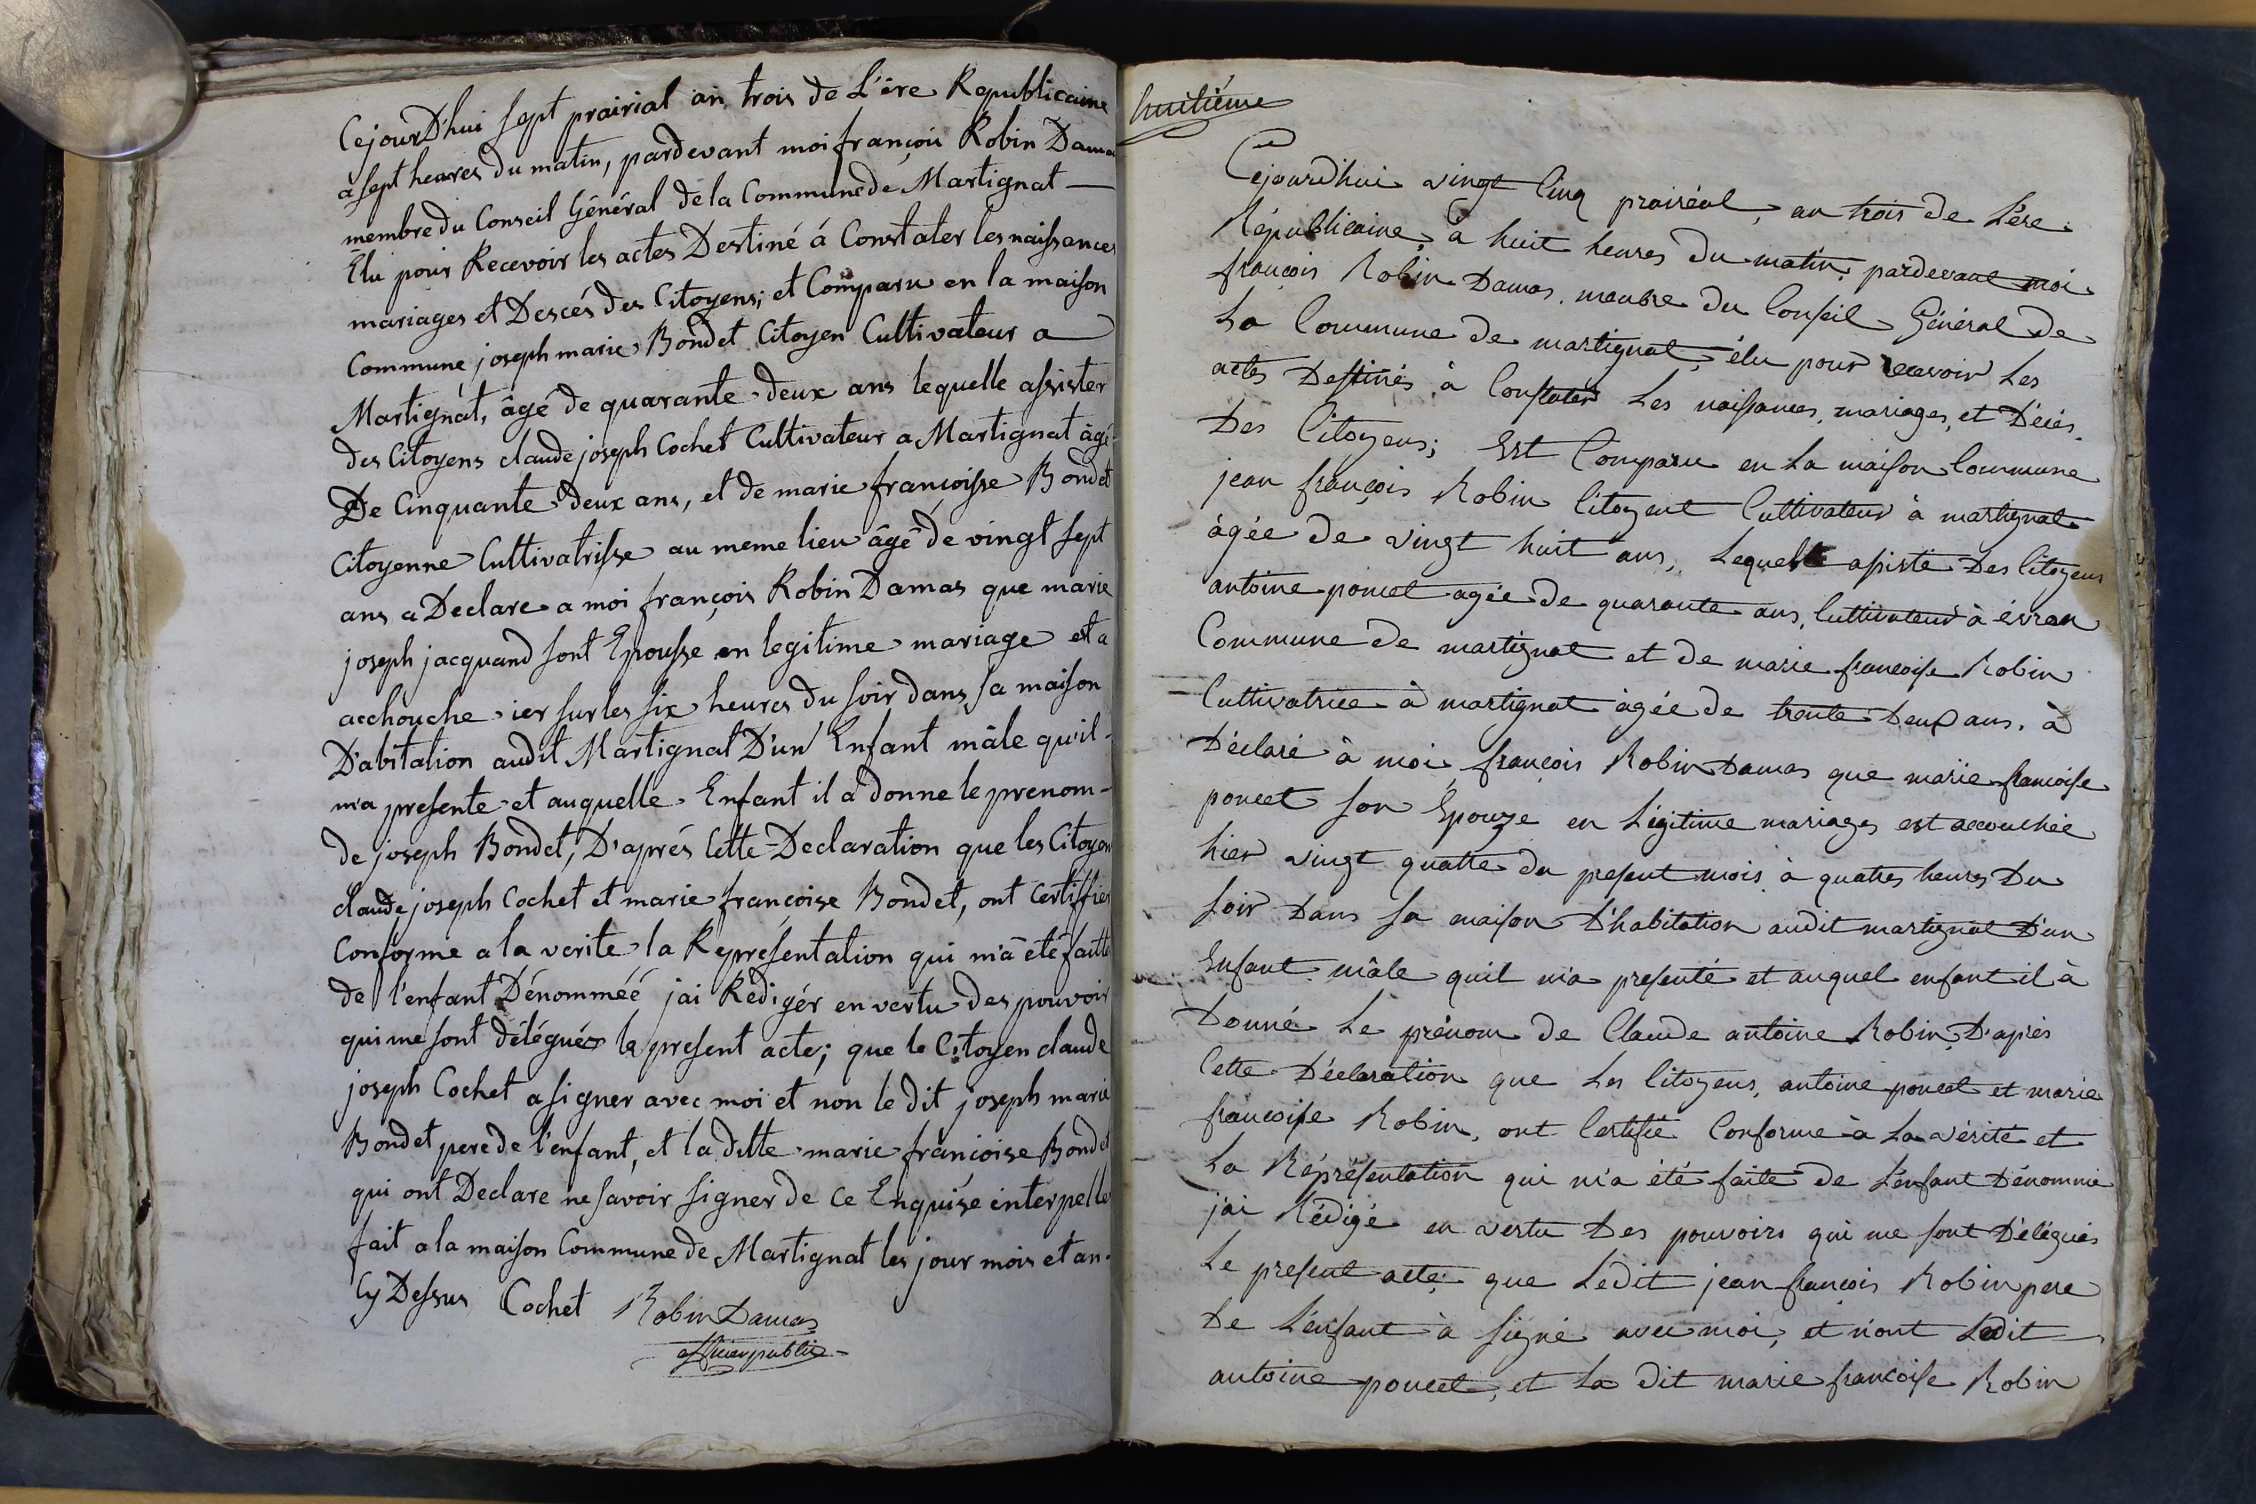 Cejourd'hui sept prairial an trois de L'ère Republicaine
à sept heures du matin, pardevant moi françois Robin Damas
membre du Conseil Général de la Commune de Martignat
Elu pour Recevoir les actes Destiné à Constater les naissances
mariages et Descés des Citoyens; et Comparu en la maison
Commune joseph marie Bondet Citoyen Cultivateur a
Martignat, âgé de quarante deux ans lequelle assister
des Citoyens claude joseph Cochet Cultivateur a Martignat âgé
De Cinquante deux ans, et de marie francoisse Bondet
Citoyenne Cultivatrisse au meme lieu âgé de vingt sept
ans a Declare a moi françois Robin Damas que marie
joseph jacquand sont Epousse en legitime mariage est a
acchouche ier sur les six heures du soir dans sa maison
D'abitation audit Martignat D'un Enfant mâle qu'il
m'a presente et auquelle Enfant il a donne le prenom
de joseph Bondet, D'aprés Cette Declaration que les Citoyen
claude joseph Cochet et marie françoise Bondet, ont Certiffier
Conforme a la verite la Representation qui m'a été faitte
de l'enfant Dénomméé jai Redigér en vertu des pouvoir
qui me sont délégués le present acte; que le Citoyen claude
joseph Cochet a signer avec moi et non le dit joseph marie
Bondet pere de l'enfant, et la ditte marie francoise Bondet
qui ont Declare ne savoir signer de ce Enquise interpelle
fait a la maison Commune de Martignat les jour mois et an
Cy Dessus Cochet Robin Damas
officier public
huitiéme
Cejourdhui vingt Cinq prairéal, an trois de L'ére
Républicaine, à huit heures du matin, pardevant moi
françois Robin Damas, menbre du Conseil Général de
La Commune de martignat, élu pour recevoir Les
actes Destinés à Constater Les naissances, mariages, et Décés
Des Citoyens; Est Comparu en La maison Commune
jean françois Robin Citoyent Cultivateur à martignat
âgée de vingt huit ans, Lequel assisté Des Citoyens
antoine poncet agée de quarante ans, Cultivateur à évron
Commune de martignat et de marie francoise Robin
Cultivatrice à martignat âgée de trente Deux ans, à
Déclaré à moi françois Robin Damas que marie francoise
poncet son Epouze en Légitime mariages est accouchée
hier vingt quattre du present mois à quatres heures Du
soir Dans sa maison D'habitation audit martignat D'un
Enfant mâle quil m'a presenté et auquel enfant il à
Donné Le prénom de Claude antoine Robin, D'aprés
Cette Déclaration que Les Citoyens, antoine poncet et marie
francoise Robin, ont Certifié Conforme à La vérité et
La Réprésentation qui m'a été faite de L'enfant Dénommé
jai Rédigé en vertu Des pouvoirs qui me sont Délégués
Le present acte, que Ledit jean françois Robin pere
De L'enfant à signé avec moi, et n'ont Ledit
antoine poncet, et La dit marie francoise Robin